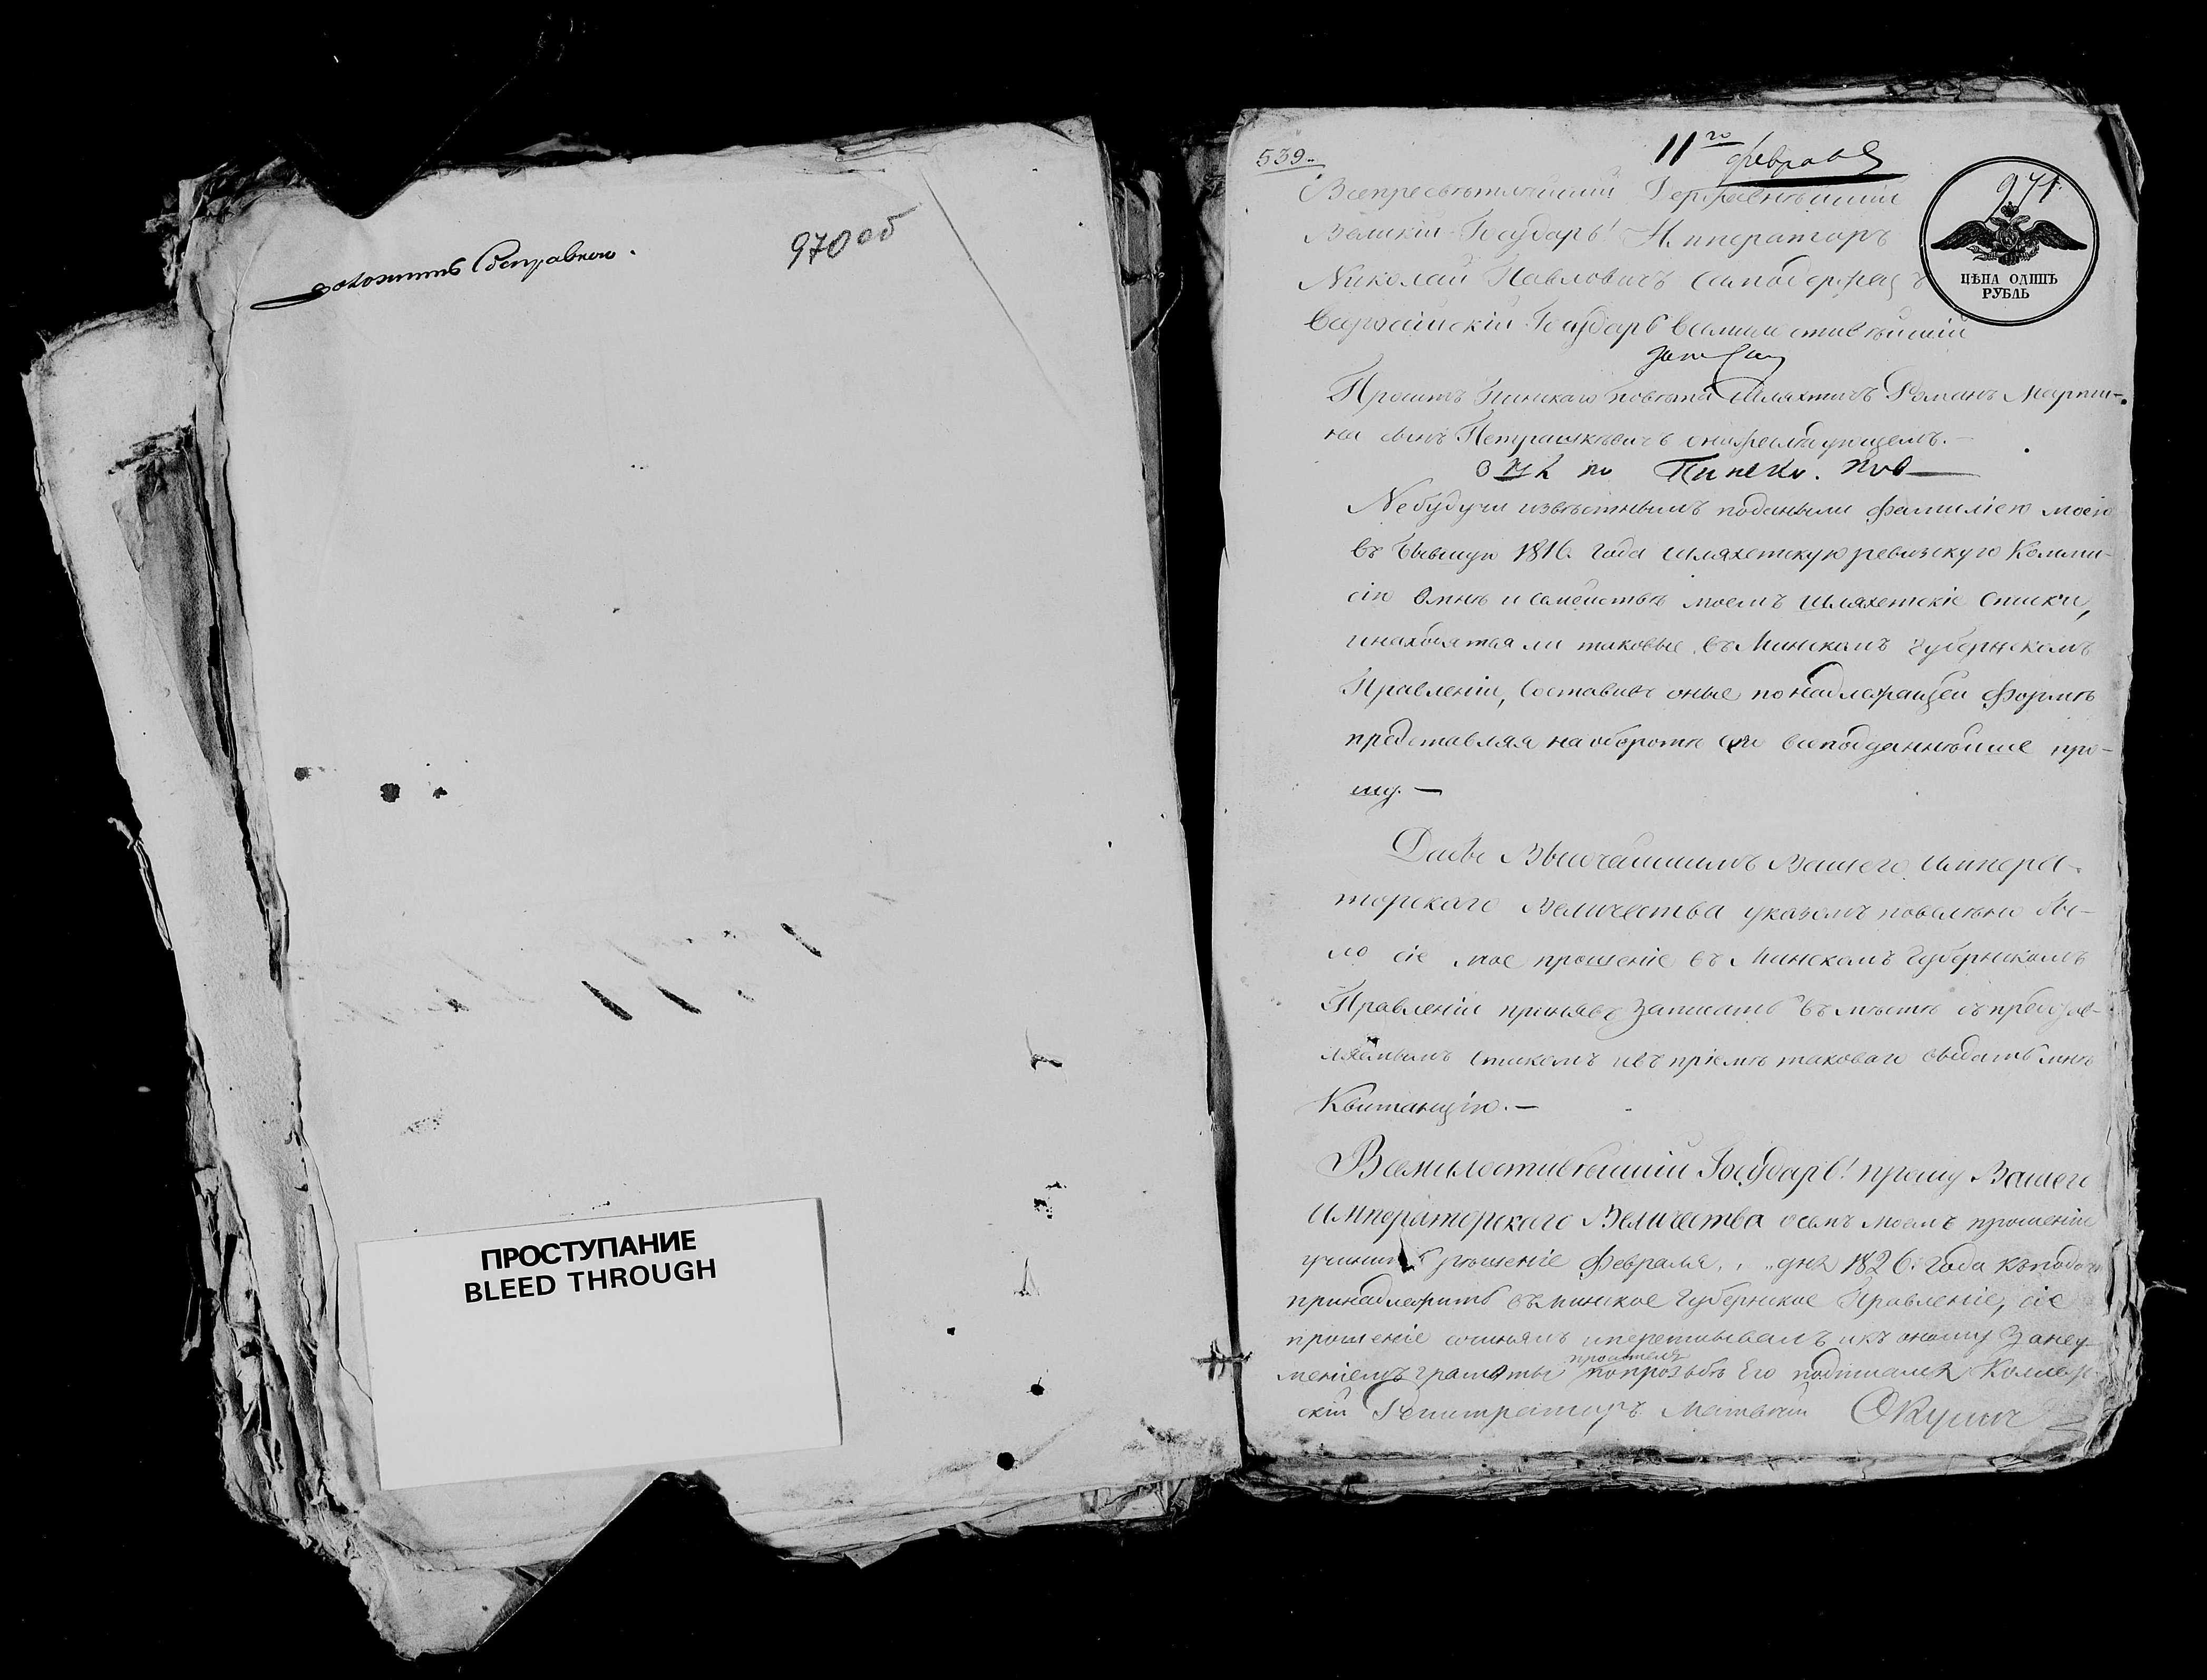 доложить с справкою.
970 об
ПРОСТУПАНИЕ
BLEED THROUGH
539.
11го февраля
971.
ЦѢНА ОДИНЪ
РУБЛЬ
Всепресвѣтлѣйшій Державнѣйшій
Великій Государь Императоръ
Николай Павловичъ Самодержецъ
Всероссійскій Государь Всемилостивѣйшій
Проситъ Пинскаго повѣта Шляхтичъ Романъ Марти-
на сынъ Петрашкевичъ о нижеслѣдующемъ.—
по Пинско. пов
Небудучи извѣстнымъ поданыли фамиліею моею
въ бывшую 1816. года шляхетскую ревизскую Комми-
сію Омнѣ и семействѣ моемъ шляхетскіе списки,
инаходятся ли таковые въ Минскомъ Губернскомъ
Правленіи, Составивъ оные по надлежащей формѣ
представляя на оборотѣ сего всеподданнѣйше про-
шу.—
Дабы Высочайшимъ Вашего Импера-
торскаго Величества указомъ повелѣно бы-
ло сіе мое прошеніе въ Минскомъ Губернскомъ
Правленіи принявъ записать въмѣстѣ съ представ-
ляемымъ спискомъ ивъ пріемѣ таковаго выдать мнѣ
Квитанцію.—
Всемилостивѣйшій Государь! прошу Вашего
Императорскаго Величества осемъ моемъ прошеніи
учинить рѣшеніе Февраля „ „ дня 1826. года къ подачи
принадлежитъ въ Минское Губернское Правленіе, сіе
прошеніе сочинялъ иперепысывалъ икъ оному Занеу-
меніемъ грамоты просителя попрозьбѣ Его подписался Коллеж-
скій Регистраторъ Матвѣй Окулич